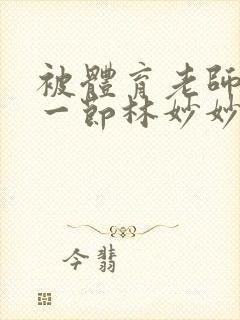 被體育老師
一節林妙妙
今翡